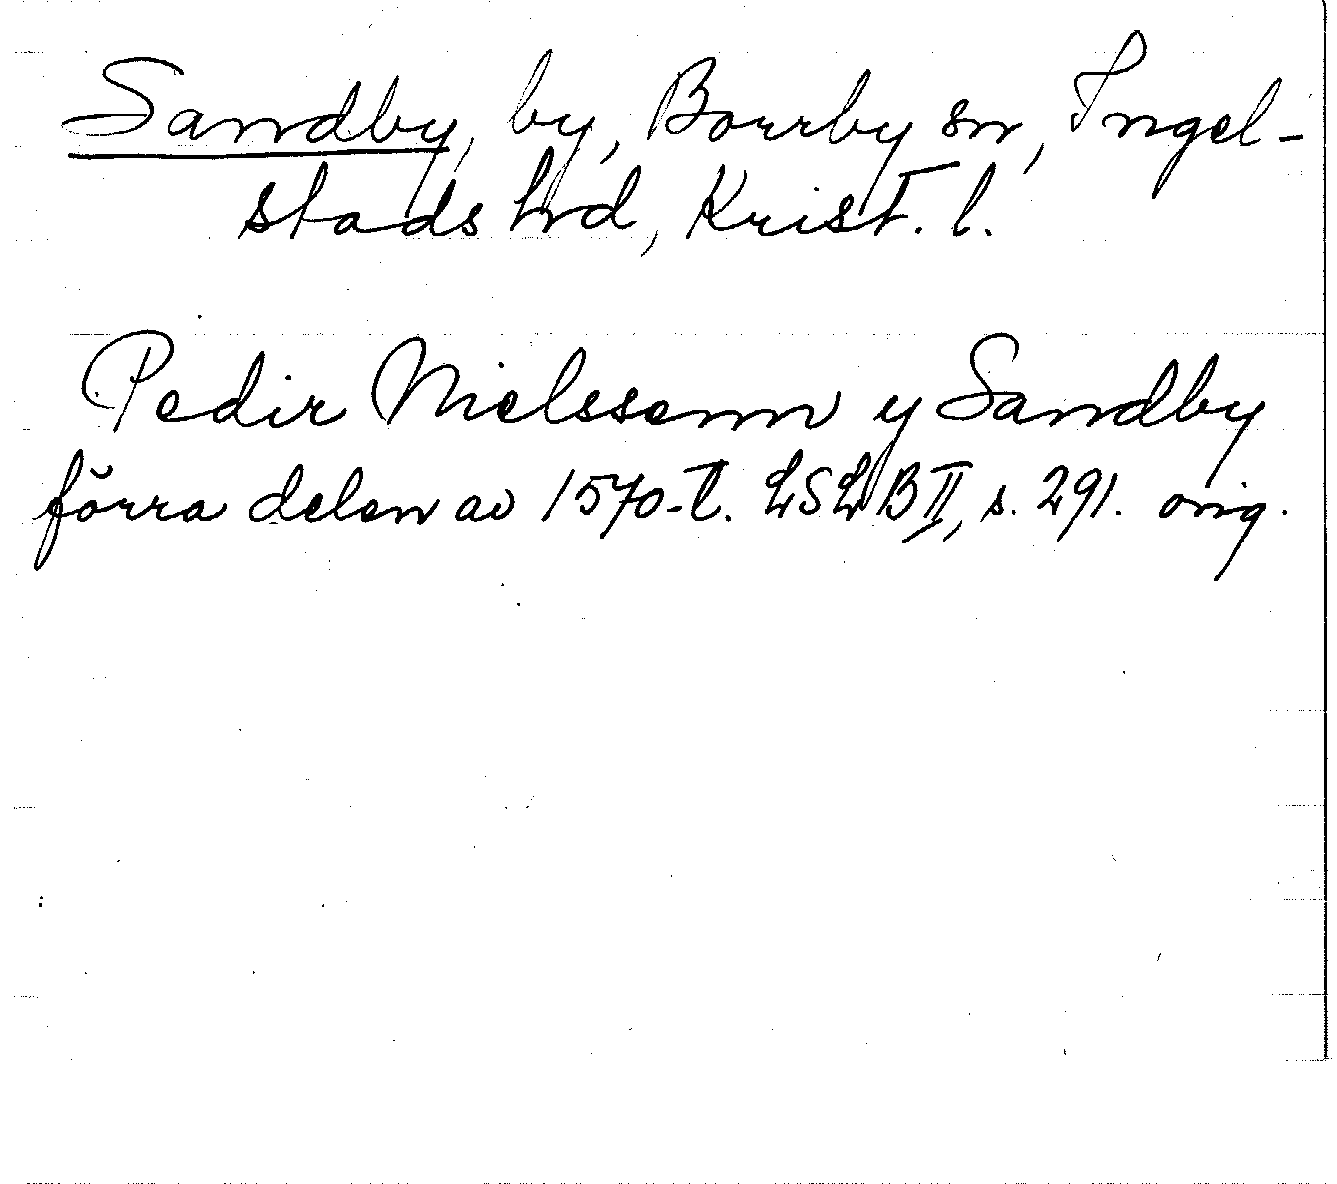 Sandby, by, Borrby sn, Ingel-
stads hrd, Krist. l.
Pedir Nielssenn y Sandby
förra delen av 1570-t. LSLB II, s. 291. orig.